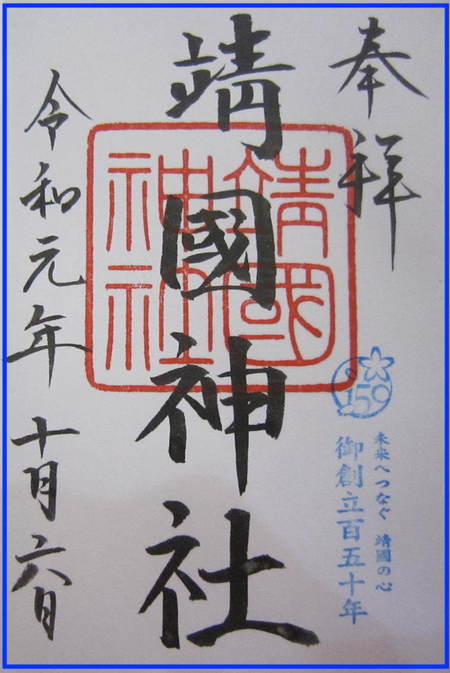 奉拝
未来へつなぐ 靖國の心
御創立百五十年
靖國神社
靖國
神社
令和元年 十月六日